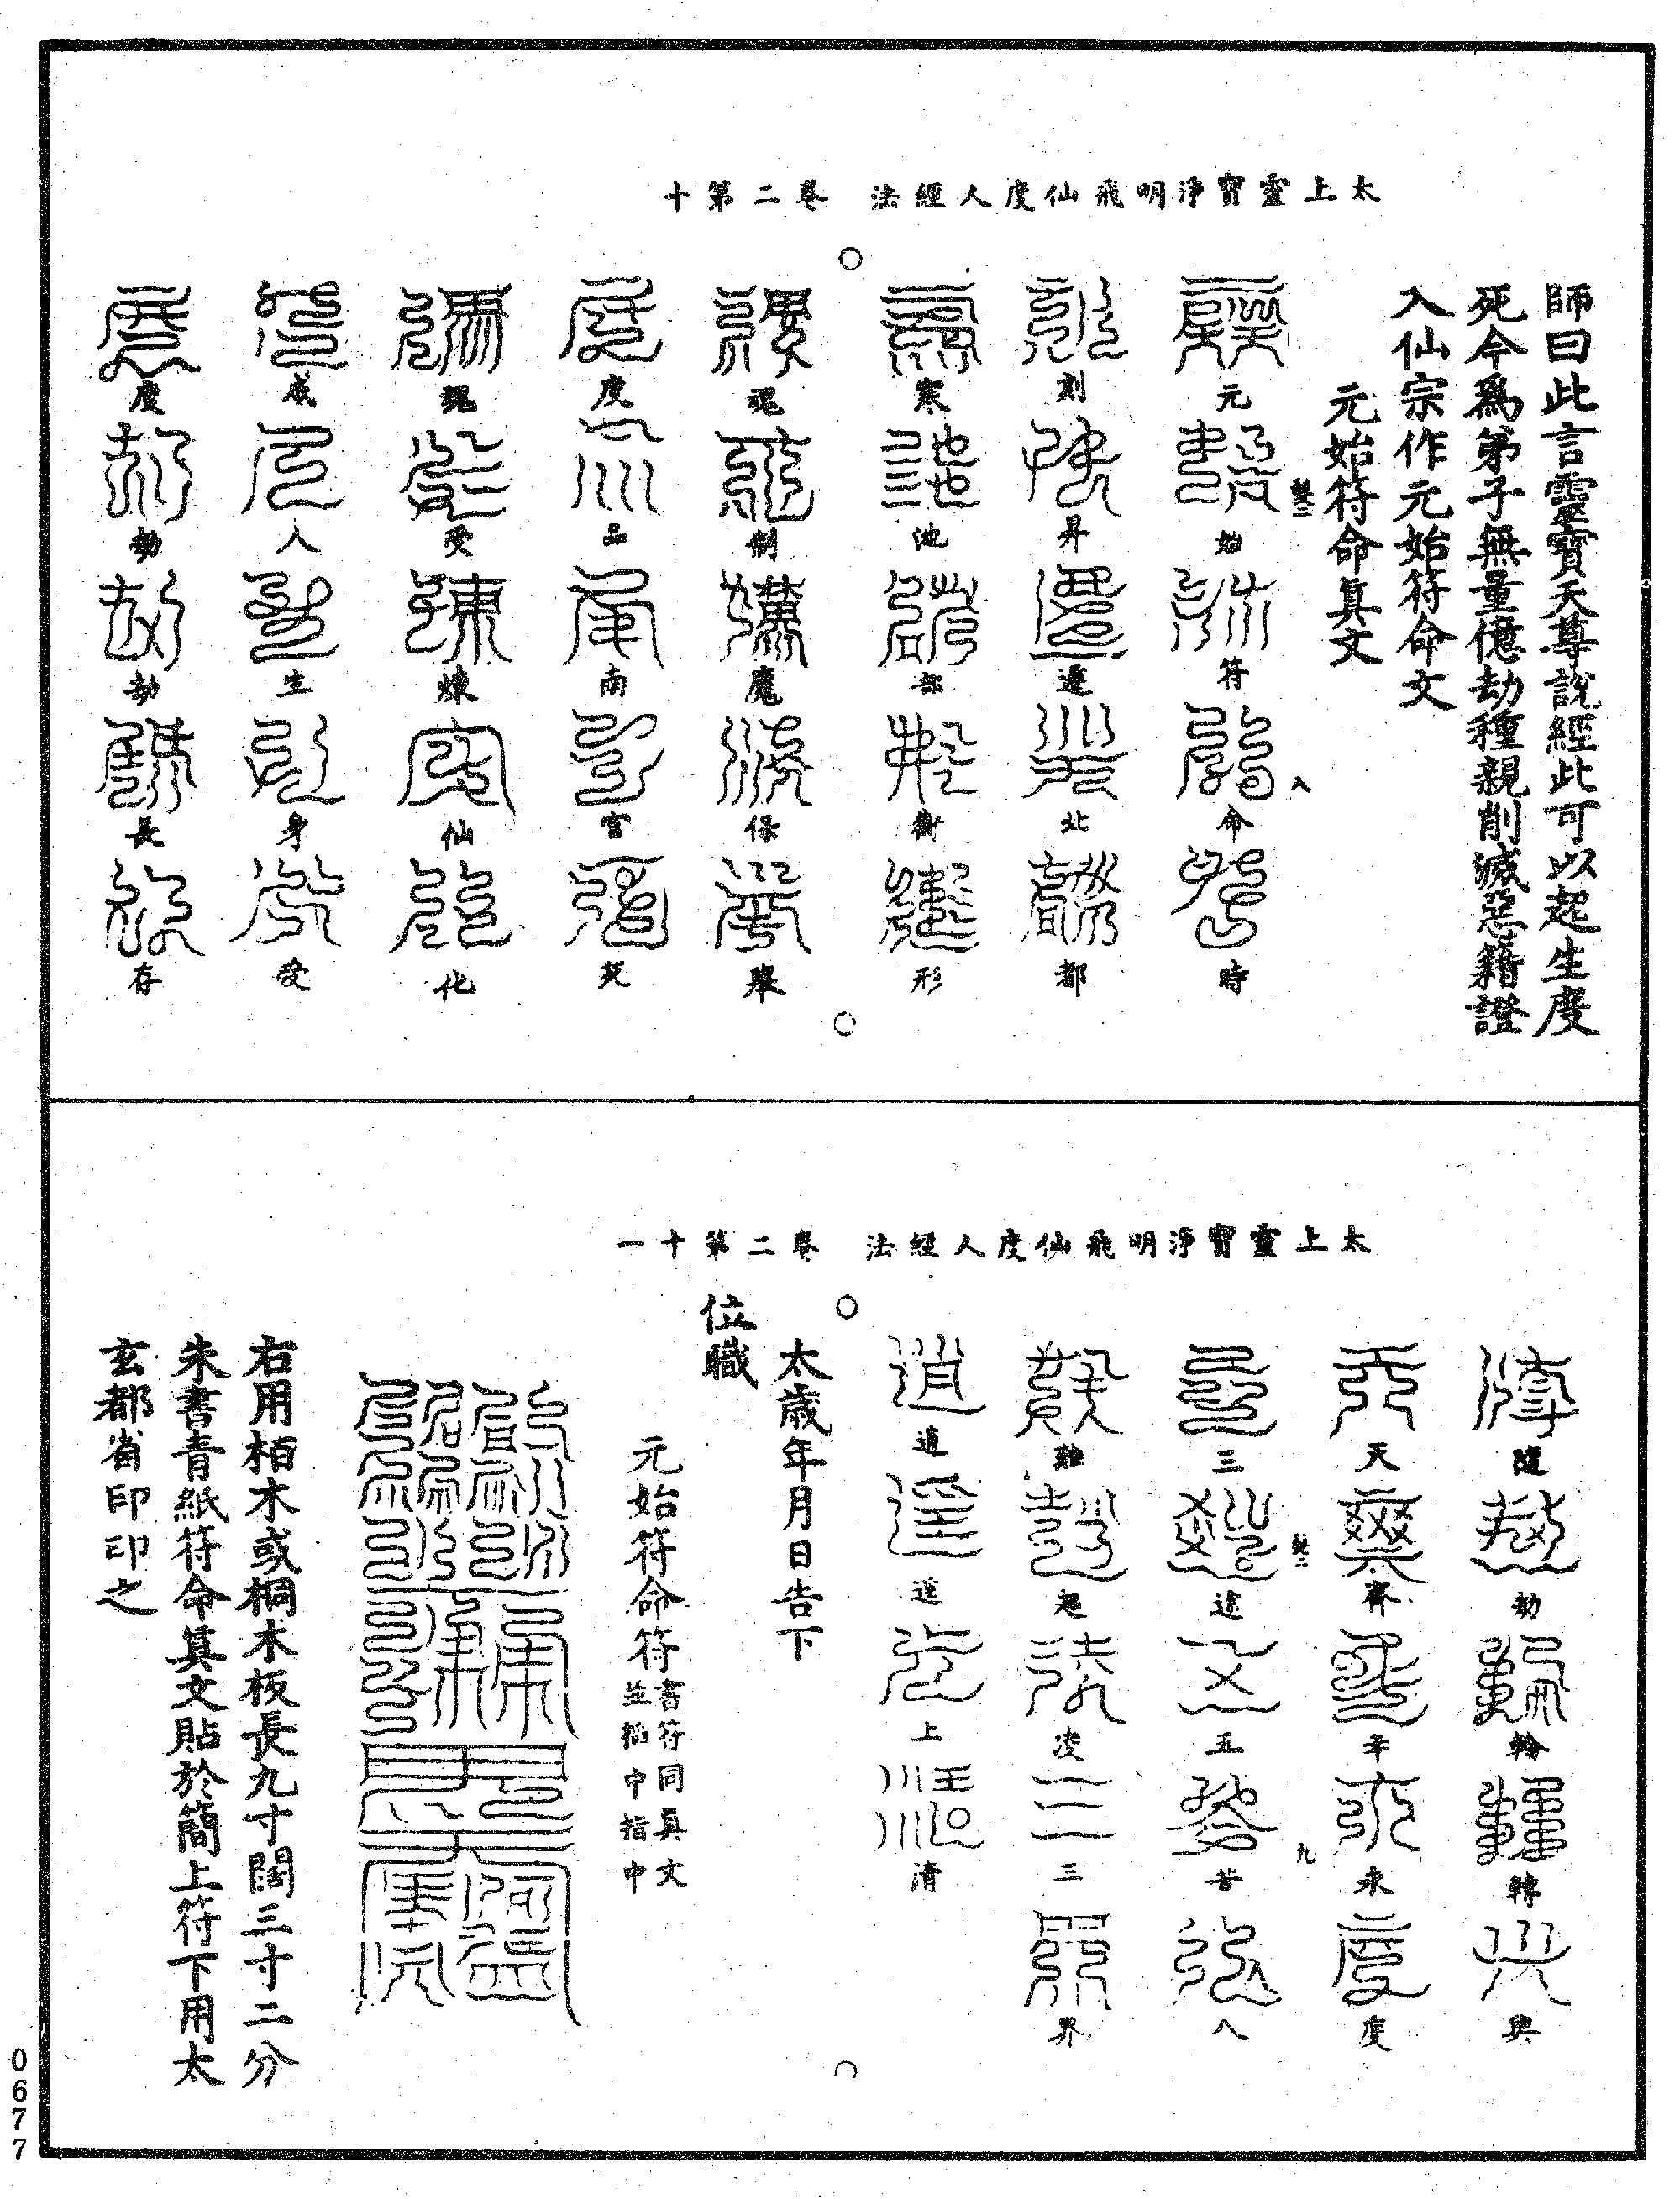 太上靈寶淨明飛仙度人經法　卷二第十
師曰此言靈寶天尊說經此可以起生度
死今爲弟子無量億劫種親削滅惡籍證
入仙宗作元始符命文
元始符命眞文
元始符命時
刻昇遷北都
寒池部衛形
魂制魔保舉
度品南宮死
魂受煉仙化
成人生身受
度劫劫長存
太上靈寶淨明飛仙度人經法　卷二第十一
隨劫輪轉與
天齊年永度
三途五苦八
難超凌三界
逍遙上清
太歲年月日告下
位職
元始符命符書符同眞文
並掐中指中
右用栢木或桐木板長九寸闊三寸二分
朱書青紙符命眞文貼於簡上符下用太
玄都省印印之
八
九
0677